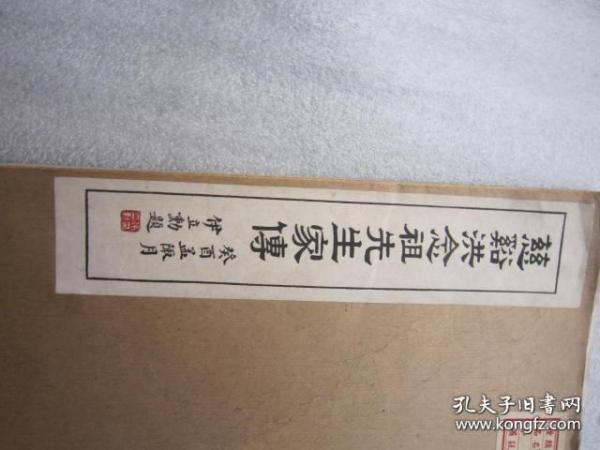 慈谿洪念祖先生家傳
癸酉孟陬月
伊立勳題
孔夫子旧书网
www.kongfz.com